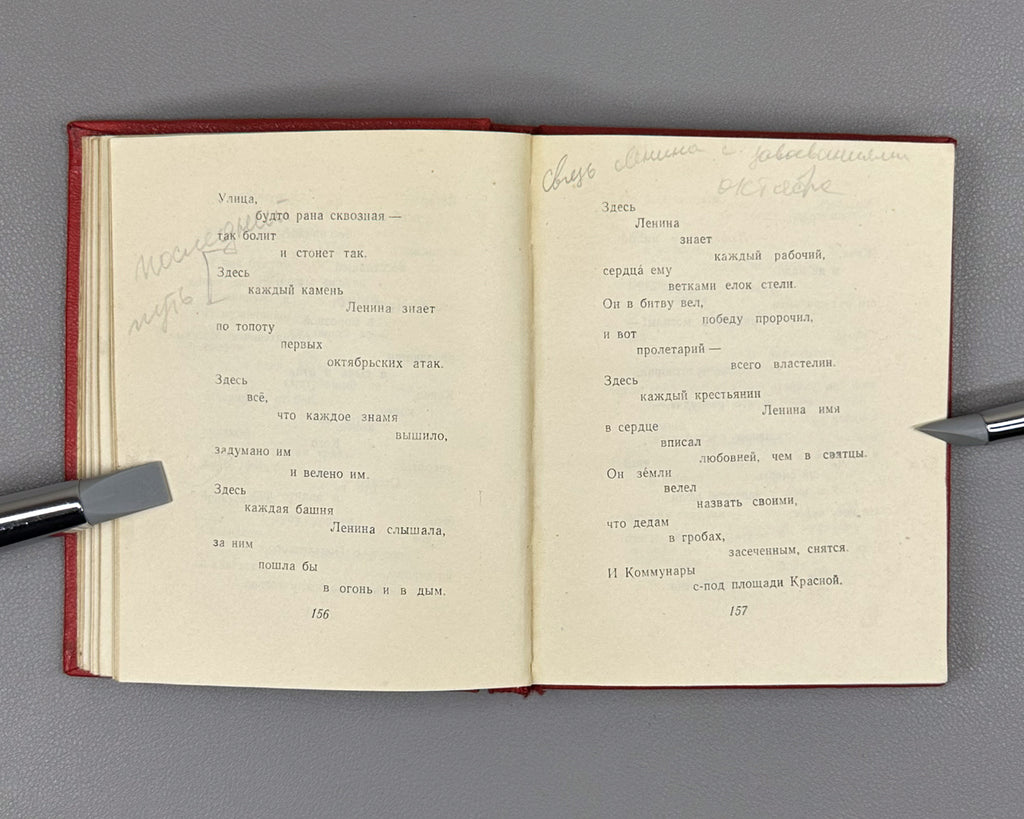 последний
путь
Улица,
будто рана сквозная —
так болит
и стонет так.
Здесь
каждый камень
Ленина знает
по топоту
первых
октябрьских атак.
Здесь
всё,
что каждое знамя
вышило,
задумано им
и велено им.
Здесь
каждая башня
Ленина слышала,
за ним
пошла бы
в огонь и в дым.
156
связь Ленина с завоеваниями
октября
Здесь
Ленина
знает
каждый рабочий,
сердца́ ему
ветками елок стели.
Он в битву вел,
победу пророчил,
и вот
пролетарий —
всего властелин.
Здесь
каждый крестьянин
Ленина имя
в сердце
вписал
любовней, чем в святцы.
Он зе́мли
велел
назвать своими,
что дедам
в гробах,
засеченным, снятся.
И Коммунары
с-под площади Красной,
157